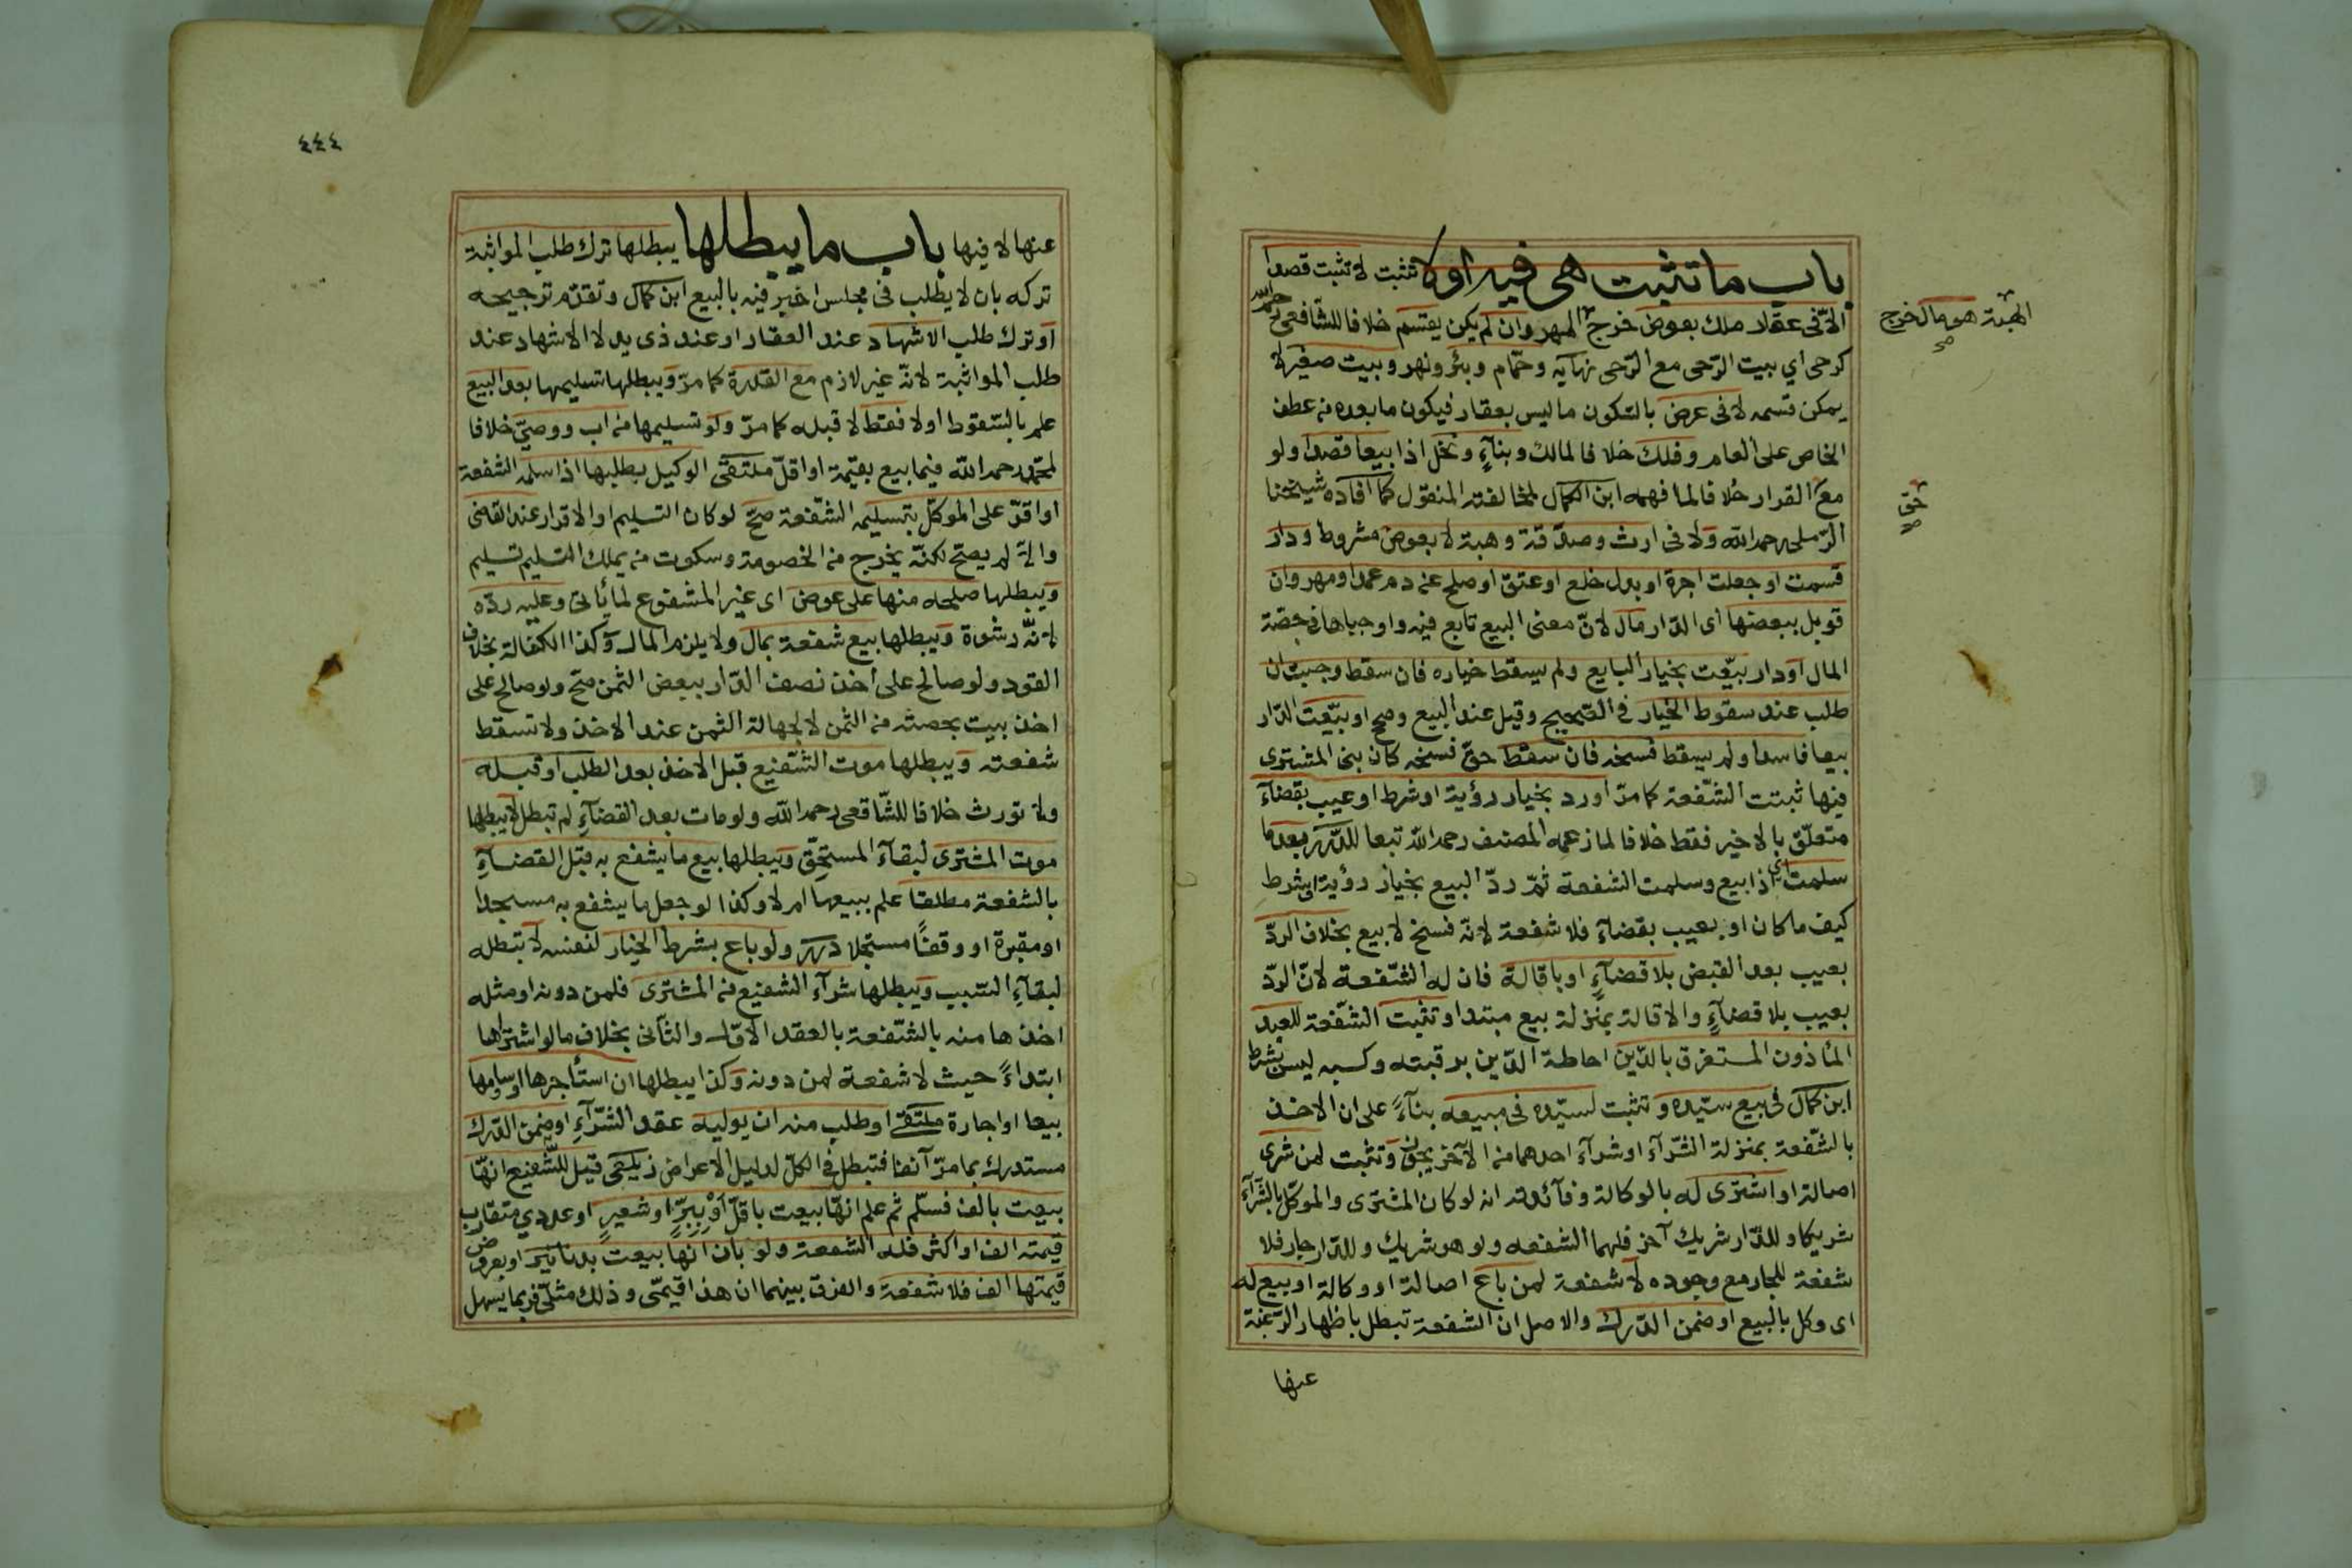 باب ما تثبت هي فيه اولا تثبت لا تثبت قصدا
الا في عقار ملك بعوض خرج المهر وان لم يكن يقتسم خلافا للشافعي رحمه الله
الهبة هو مال خرج
صح
كرحى اي بيت الرحى مع الرحى نهاية وحمّام وبئر ونهر وبيت صغير لا
يمكن قسمه لا في عرض بالسكون ما ليس بعقار فيكون ما بعده من عطف
الخاص على العام وفلك خلافا لمالك وبنآءٍ ونخل اذا بيعا قصدا ولو
مع القرار خلافا لما فهمه ابن الكمال لمخالفته المنقول كما افاده شيخنا
حق
صح
الرّملي رحمه الله ولا في ارث وصدقة وهبة لا بعوض مشروط ودار
قسمت او جعلت اجرة او بدل خلع او عتق او صلح عن دم عمد او مهر وان
قوبل ببعضها اى الدّار مال لانّ معنى البيع تابع فيه واوجباها في حصّة
المال او دار بيعت بخيار البايع ولم يسقط خياره فان سقط وجبت ان
طلب عند سقوط الخيار في الصّحيح وقيل عند البيع وصح او بيعت الدّار
بيعا فاسدا ولم يسقط فسخه فان سقط حقّ فسخه كان بنى المشترى
فيها ثبتت الشّفعة كما مرّ او رد بخيار رؤية او شرط او عيب بقضآء
متعلّق بالاخير فقط خلافا لما زعمه المصنف رحمه الله تبعا للدّرر بعد ما
سلمت اى اذا بيع وسلمت الشفعة ثمّ ردّ البيع بخيار رؤية او شرط
كيف ما كان او بعيب بقضآء فلا شفعة لانّه فسخ لا بيع بخلاف الردّ
بعيب بعد القبض بلا قضآءٍ او باقالة فان له الشّفعة لانّ الردّ
بعيب بلا قضآءٍ والاقالة بمنزلة بيع مبتدا وتثبت الشّفعة للعبد
المأذون المستغرق بالدّين احاطة الدّين برقبته وكسبه ليس بشرط
ابن كمال في بيع سيّده وتثبت لسيّده في مبيعه بنآءً على ان الاخذ
بالشّفعة بمنزلة الشّرآء او شرآء احدهما من الآخر يجوز وتثبت لمن شرى
اصالة او اشترى له بالوكالة وفآئدته انه لو كان المشترى والموكّل بالشّرآء
شريكا وللدّار شريك آخر فلهما الشفعه ولو هو شريك وللدّار جار فلا
شفعة للجار مع وجوده لا شفعة لمن باع اصالة او وكالة او بيع له
اى وكل بالبيع او ضمن الدّرك والاصل ان الشفعة تبطل باظهار الرّغبة
عنها
٤٤٤
عنها لا فيها باب ما يبطلها يبطلها ترك طلب المواثبة
تركه بان لا يطلب في مجلس اخبر فيه بالبيع ابن كمال وتقدّم ترجيحه
او ترك طلب الاشهاد عند العقار او عند ذى يد لا الاشهاد عند
طلب المواثبة لانّه غير لازم مع القدرة كما مرّ ويبطلها تسليمها بعد البيع
علم بالسّقوط اولا فقط لا قبله كما مرّ ولو تسليمها من اب ووصيّ خلافا
لمحمّد رحمه الله فيما بيع بقيمة او اقلّ ملتقى الوكيل بطلبها اذا سلم الشفعة
او اقرّ على الموكّل بتسليمه الشّفعة صحّ لو كان التسليم او الاقرار عند القاضى
والاّ لم يصحّ لكنّه يخرج من الخصومة وسكوت من يملك التسليم تسليم
ويبطلها صلحه منها على عوض اى غير المشفوع لما يأتى وعليه ردّه
لانّه رشوة ويبطلها بيع شفعة بمال ولا يلزم المال وكذا الكفالة بخلاف
القود ولو صالح على أخذ نصف الدّار ببعض الثمن صحّ ولو صالح على
اخذ بيت بحصته من الثمن لا لجهالة الثمن عند الاخذ ولا تسقط
شفعته ويبطلها موت الشّفيع قبل الاخذ بعد الطلب او قبله
ولا تورث خلافا للشّافعى رحمه الله ولو مات بعد القضآءِ لم تبطل لا يبطلها
موت المشترى لبقآء المستحِقّ ويبطلها بيع ما يشفع به قبل القضآءِ
بالشفعة مطلقا علم ببيعها ام لا وكذا لو جعل ما يشفع به مسجدا
او مقبرة او وقفًا مسجلا درر ولو باع بشرط الخيار لنفسه لا تبطله
لبقآءِ السّبب ويبطلها شرآء الشفيع من المشترى فلمن دونه او مثله
اخذها منه بالشّفعة بالعقد الاوّل والثّانى بخلاف ما لو اشتراها
ابتداءً حيث لا شفعة لمن دونه وكذا يبطلها ان استأجرها او ساومها
بيعا او اجارة ملتقى او طلب منه ان يوليه عقد الشّرآءِ او ضمن الدّرك
مستدرك بما مرّ آنفا فتبطل في الكلّ لدليل الاعراض زيلعى قيل للشّفيع انّها
بيعت بالف فسلّم ثم علم انّها بيعت باقلّ أَوْ بِبِرٍّ او شعيرٍ او عددي متقارب
قيمته الف او اكثر فله الشفعة ولو بان انها بيعت بدنانير او بعروض
قيمتها الف فلا شفعة والفرق بينهما ان هذا قيمّى وذلك مثلىّ فربما يسهل